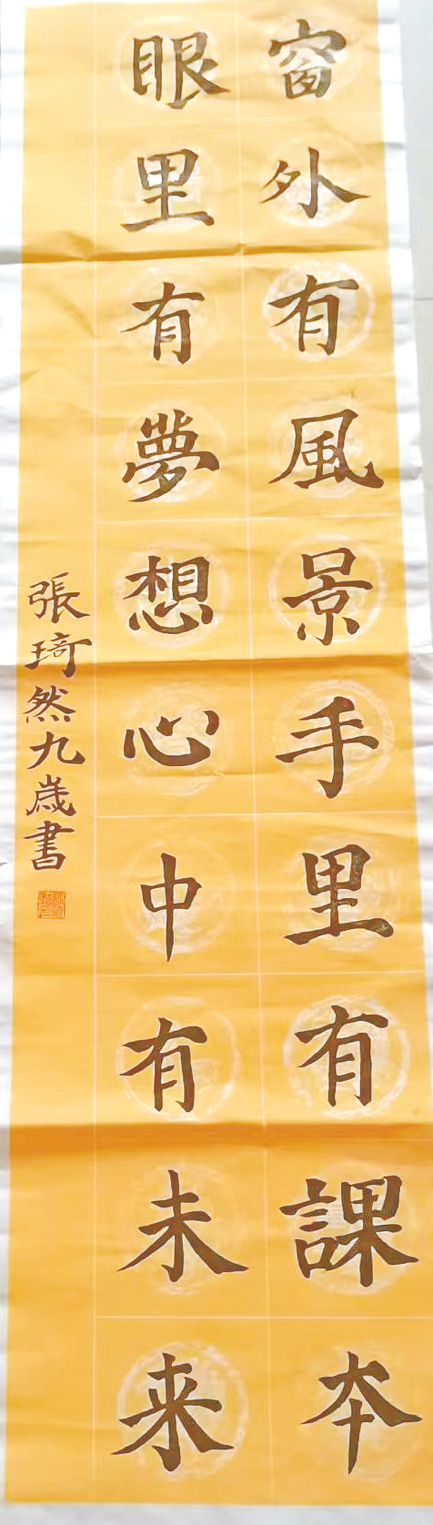 窗外有風景手里有課本
眼里有夢想心中有未来
張琦然九歲書